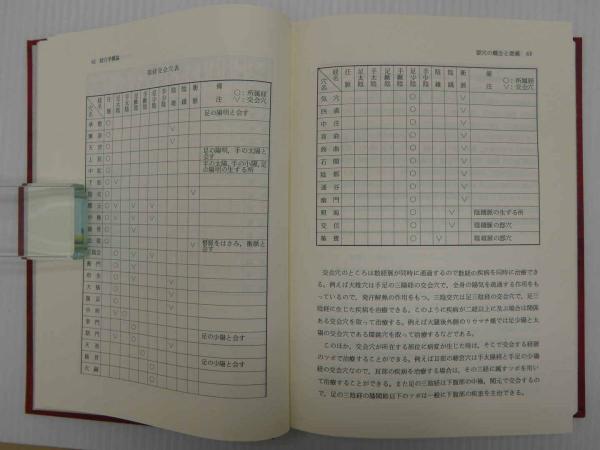 62 経穴学概論
陰経交会穴表
経名
穴名
任脈
足太陰
手太陰
足厥陰
手厥陰
足少陰
手少陰
陰維
陰蹻
衝脈
備注
○:所属経
∨:交会穴
承漿 足の陽明と会す
廉泉
天突
上脘 足の陽明,手の太陽と会す
中脘 手の太陽,手の少陽,足の陽明の生ずる所
下脘
陰交
関元
中極
曲骨
会陰 督脈をはさみ,衝脈と会す
三陰交
衝門
府舎
大横
腹哀
中府
章門 足の少陽と会す
期門
天池 足の少陽と会す
横骨
大赫
要穴の概念と意義 63
経名
穴名
任脈
足太陰
手太陰
足厥陰
手厥陰
足少陰
手少陰
陰維
陰蹻
衝脈
備注
○:所属経
∨:交会穴
気穴
四満
中注
肓兪
商曲
石関
陰都
通谷
幽門
照海 陰蹻脈の生ずる所
交信 陰蹻脈の郄穴
築賓 陰維脈の郄穴
交会穴のところは数経脈が同時に通過するので数経の疾病を同時に治療でき
る。例えば大椎穴は手足の三陽経の交会穴で、全身の陽気を疏通する作用をも
っているので、発汗解熱の作用をもつ。三陰交穴は足三陰経の交会穴で、足三
陰経に生じた疾病を治療できる。このように疾病が二経以上に及ぶ場合は関係
ある交会穴を取って治療する。例えば大腿後外側のリウマチ痛では足少陽と太
陽の交会穴である環跳穴を取って治療するなどである。
このほか、交会穴が所在する部位に病変が生じた時は、そこで交会する経脈
のツボで治療することができる。例えば耳部の聴宮穴は手太陽経と手足の少陽
経の交会穴なので、耳部の疾病を治療する場合は、その三経に属すツボを用い
て治療することができる。また足の三陰経は下腹部の中極、関元で交会するの
で、足の三陰経の膝関節以下のツボは一般に下腹部の疾患を主治できる。